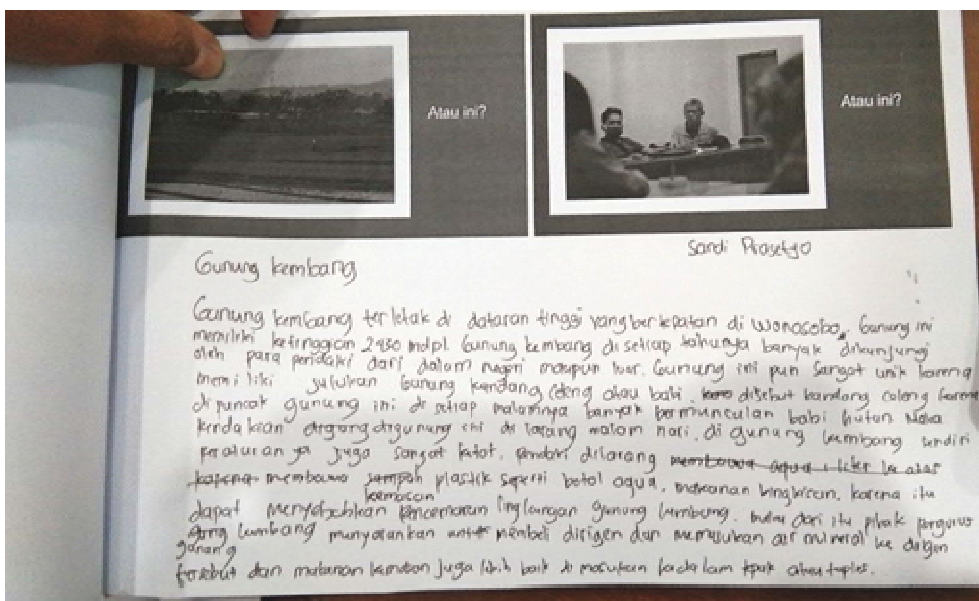 Atau ini?
Atau ini?
Sandi Prasetyo
Gunung kembang
Gunung kembang terletak di dataran tinggi yang bertepatan di Wonosobo, Gunung ini
memiliki ketinggian 2430 mdpl. Gunung kembang di setiap tahunya banyak dikunjungi
oleh para pendaki dari dalam negri maupun luar. Gunung ini pun sangat unik karena
memiliki julukan Gunung kandang celeng atau babi, disebut kandang celeng karena
di puncak gunung ini di setiap malamnya banyak bermunculan babi hutan Maka
pendakian digunung ini di larang malam hari. di gunung kembang sendiri
peraturan ya juga sangat ketat, pendaki dilarang membawa aqua ke atas
karena membawa sampah plastik seperti botol aqua, makanan bingkisan, karena itu
kemasan
dapat menyebabkan pencemaran lingkungan gunung kembang. dari itu pihak pengurus
kembang menyarankan untuk membeli dirigen dan memasukan air mineral ke dalam
gunung
tersebut dan makanan kemasan juga lebih baik di masukan kadalam tepak atau toples.